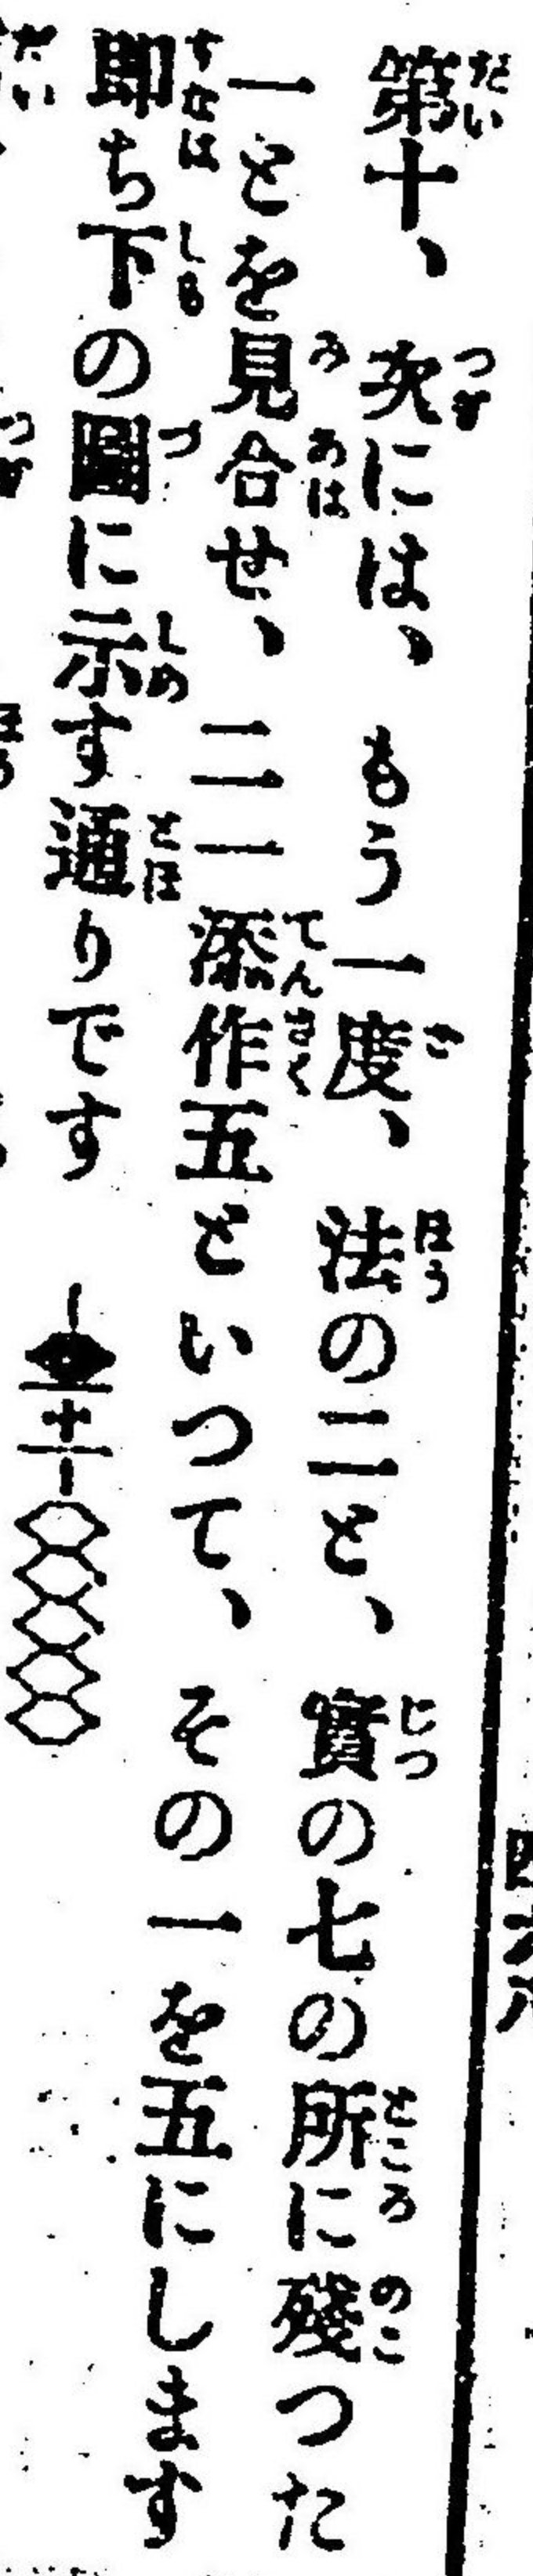 第十、次には、もう一度、法の二と、實の七の所に殘つた
一とを見合せ、二一添作五といつて、その一を五にします
卽ち下の圖に示す通りです